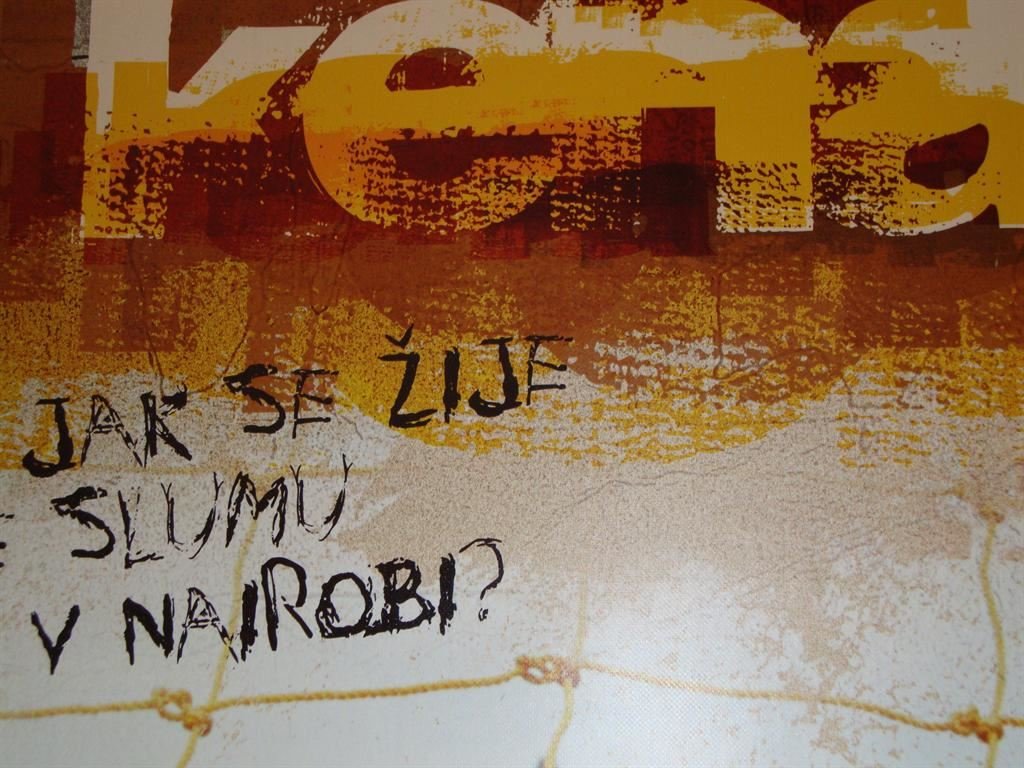 keňa
JAK SE ŽIJE
E SLUMU
V NAIROBI?